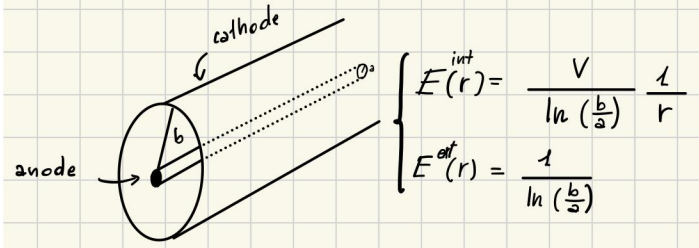 cathode
b
a
anode
E^{int}(r) = \frac{V}{\ln(\frac{b}{a})} \frac{1}{r}
E^{ext}(r) = \frac{1}{\ln(\frac{b}{a})}